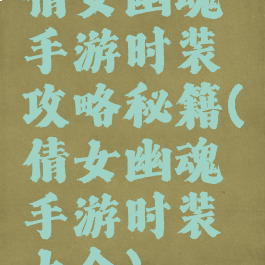 倩女幽魂
手游时装
攻略秘籍(
倩女幽魂
手游时装
大全)